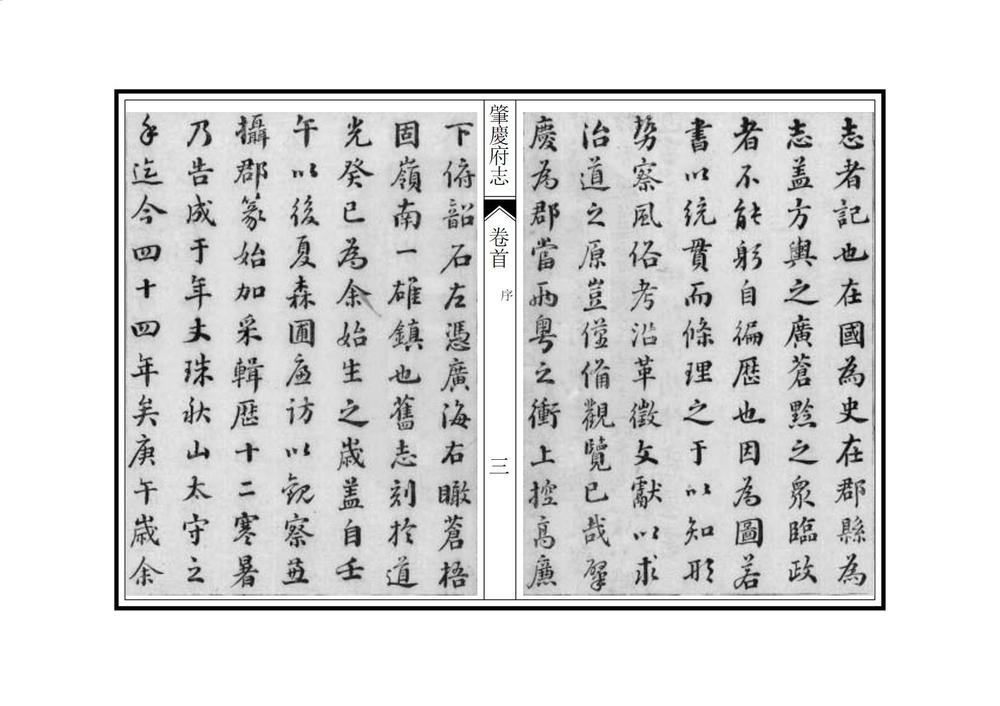 志者記也在國為史在郡縣為
志蓋方輿之廣蒼黔之眾臨政
者不能躬自徧歷也因為圖若
書以統貫而條理之于以知形
勢察風俗考沿革徵文獻以求
治道之原豈僅備觀覽已哉肇
慶為郡當兩粵之衝上控高廉
肇慶府志
卷首
序
三
下俯韶石左憑廣海右瞰蒼梧
固嶺南一雄鎮也舊志刻於道
光癸巳為余始生之歲蓋自壬
午以後夏森圃廉訪以觀察兼
攝郡篆始加采輯歷十二寒暑
乃告成于年丈珠狀山太守之
手迄今四十四年矣庚午歲余